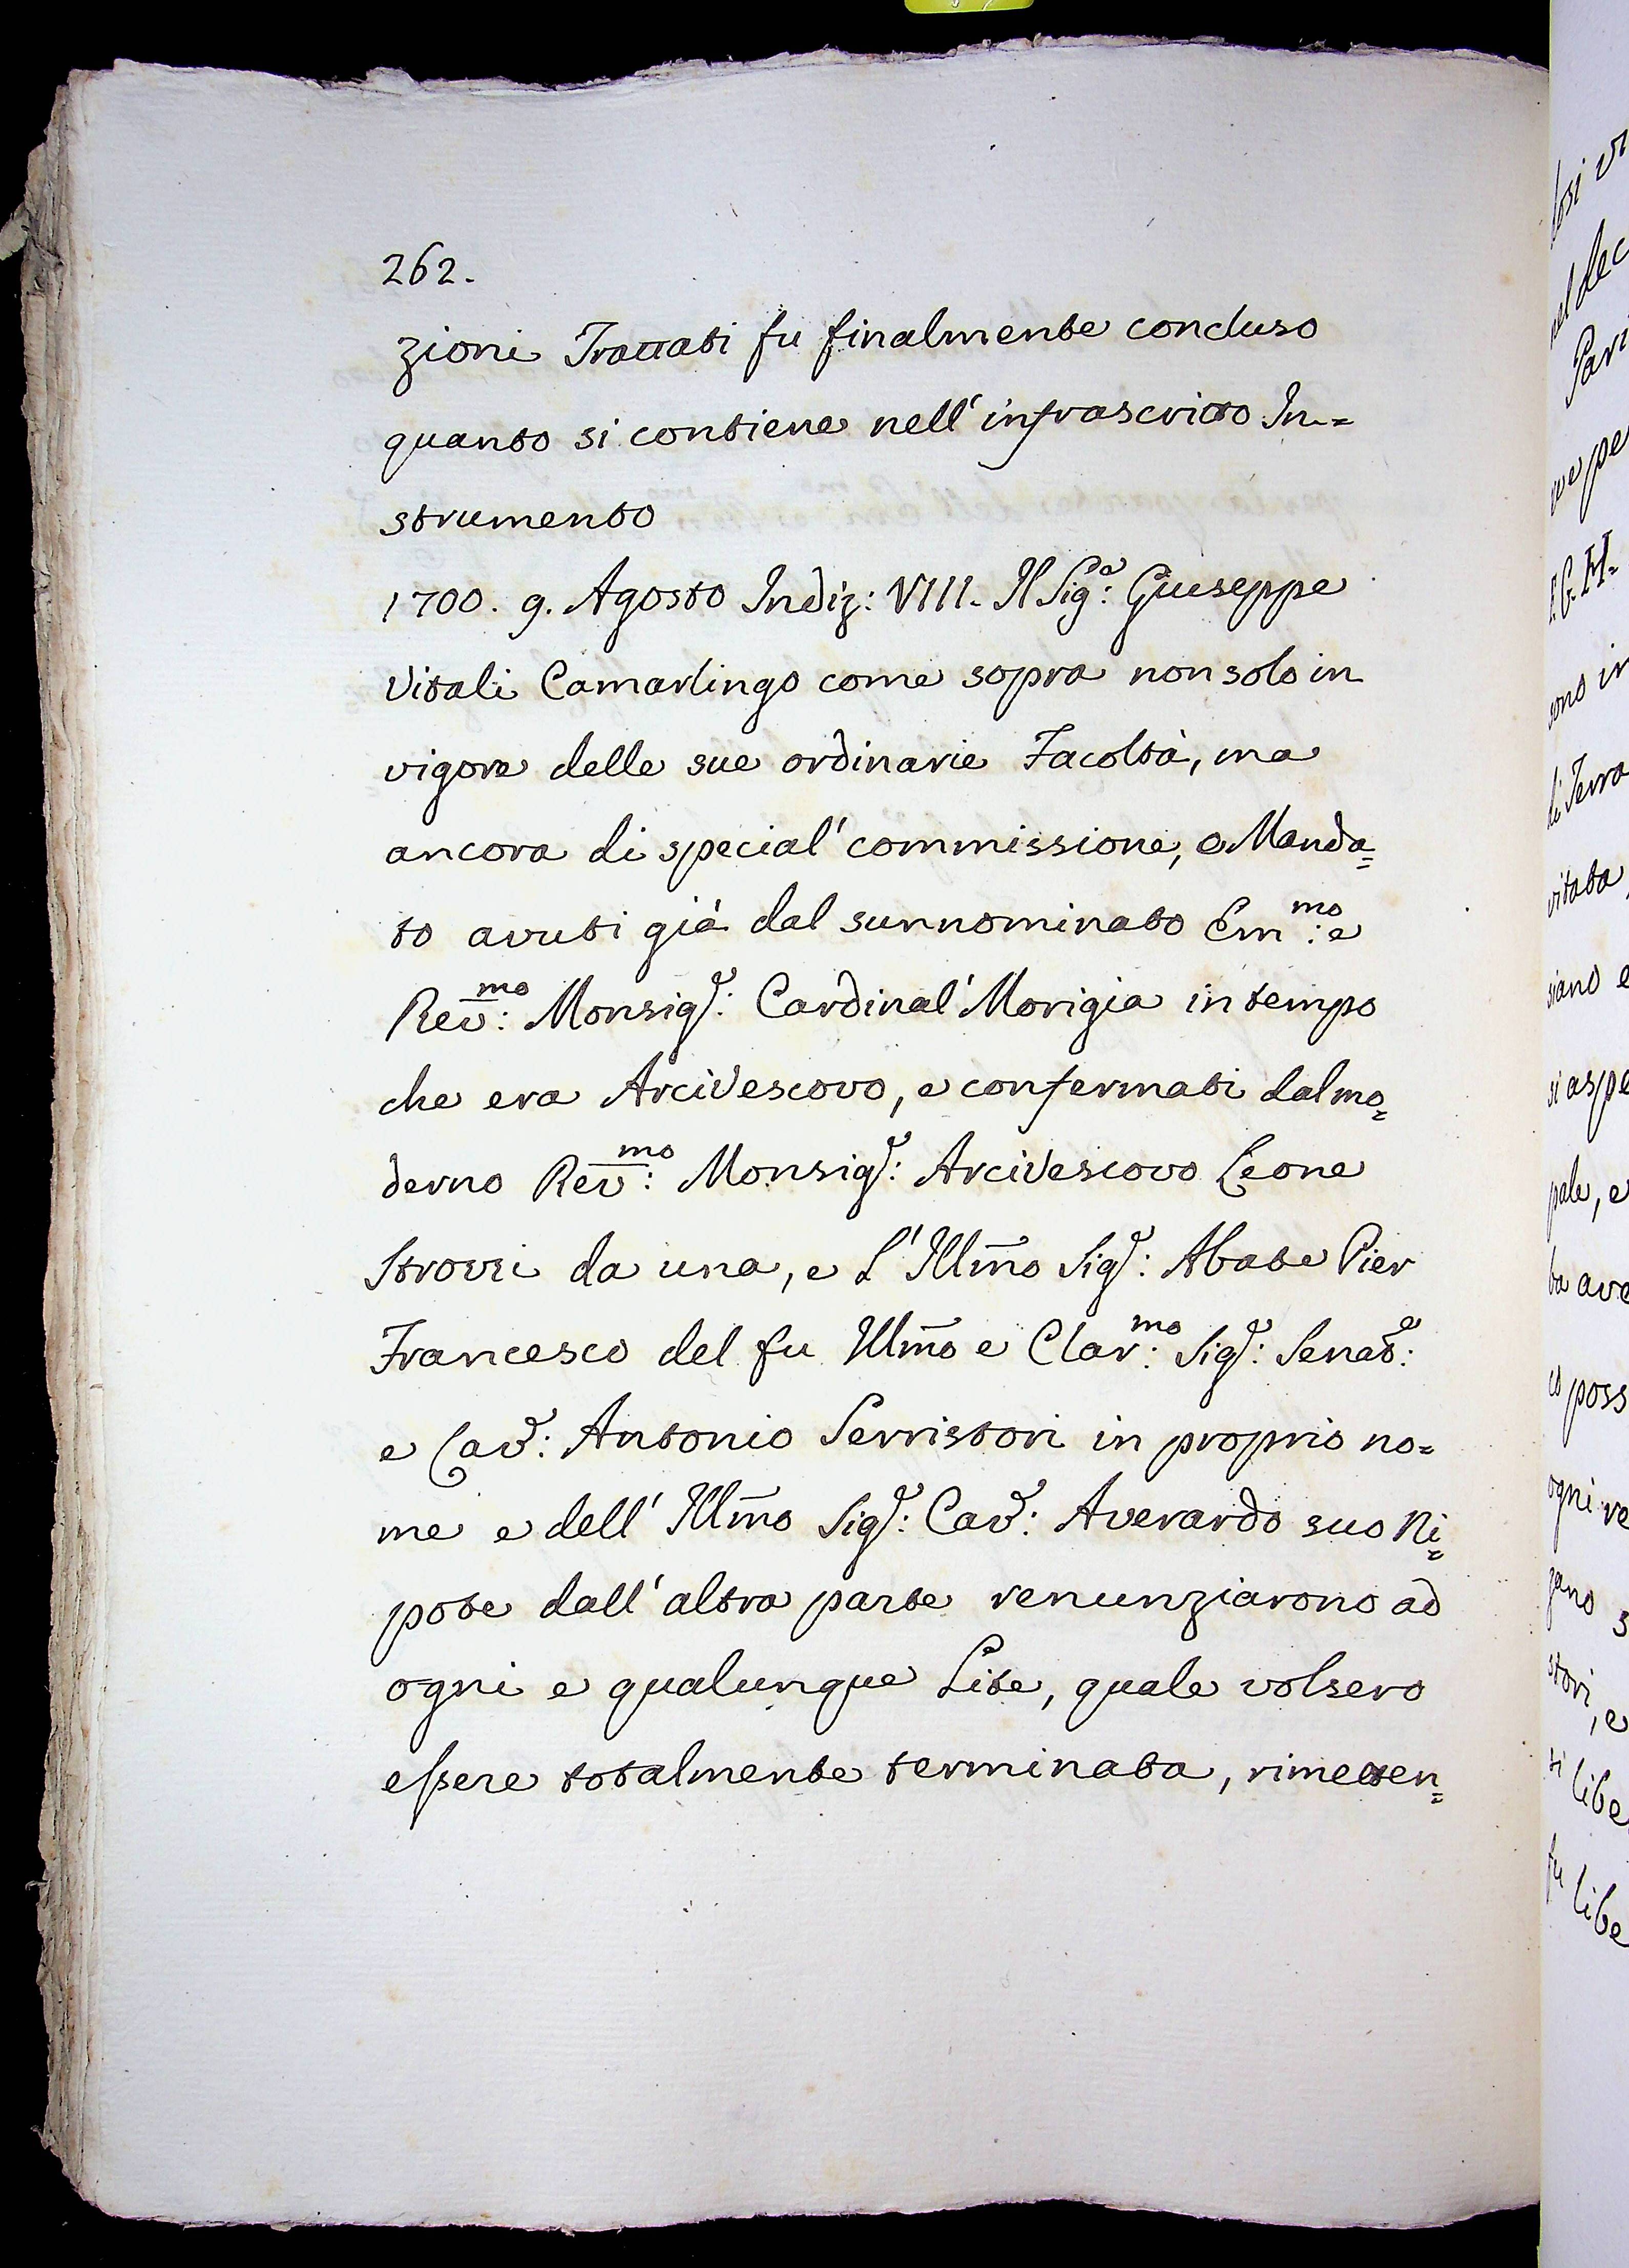 262.
zioni Trattati fu finalmente concluso
quanto si contiene nell' infrascritto In=
strumento
1700. 9. Agosto Indiz: VIII. Il Sigᵉ: Giuseppe
Vitali Camarlingo come sopra non solo in
vigore delle sue ordinarie Facoltà, ma
ancora di special' commissione, o Manda=
to avuti già dal sunnominato Emᵐᵒ: e
Revᵐᵒ: Monsigʳ: Cardinal' Morigia in tempo
che era Arcivescovo, e confermati dal mo=
derno Revᵐᵒ: Monsigʳ: Arcivescovo Leone
Strozzi da una, e l' Illm̃o Sigʳ: Abate Pier
Francesco del fu Illm̃o e Clarᵐᵒ: Sigʳ: Senatᵉ:
e Cavʳ: Antonio Serristori in proprio no=
me e dell' Illm̃o Sigʳ: Cavʳ: Averardo suo Ni=
pote dall' altra parte renunziarono ad
ogni e qualunque Lite, quale volsero
essere totalmente terminata, rimetten=